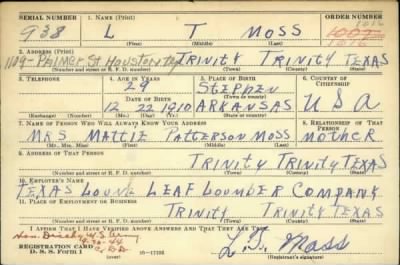 SERIAL NUMBER 1. NAME (Print) ORDER NUMBER
938 L T MOSS 1016
(First) (Middle) (Last) 1016
2. ADDRESS (Print)
1109-PALMER St HOUSTON TEX TRINITY TRINITY TEXAS
(Number and street or R. F. D. number) (Town) (County) (State)
3. TELEPHONE 4. AGE IN YEARS 5. PLACE OF BIRTH 6. COUNTRY OF CITIZENSHIP
29 STEPHEN
DATE OF BIRTH (Town or county)
12 22 1910 ARKANSAS U S A
(Exchange) (Number) (Mo.) (Day) (Yr.) (State or country)
7. NAME OF PERSON WHO WILL ALWAYS KNOW YOUR ADDRESS 8. RELATIONSHIP OF THAT PERSON
MRS MATTIE PATTERSON MOSS MOTHER
(Mr., Mrs., Miss) (First) (Middle) (Last)
9. ADDRESS OF THAT PERSON
TRINITY TRINITY TEXAS
(Number and street or R. F. D. number) (Town) (County) (State)
10. EMPLOYER'S NAME
TEXAS LOUNG LEAF LOUMBER COMPANY
11. PLACE OF EMPLOYMENT OR BUSINESS
TRINITY TRINITY TEXAS
(Number and street or R. F. D. number) (Town) (County) (State)
I AFFIRM THAT I HAVE VERIFIED ABOVE ANSWERS AND THAT THEY ARE TRUE.
Hon. Disch'g U.S. Army
REGISTRATION CARD
D. S. S. FORM 1 (over) 16-17105 L.T. Moss
(Registrant's signature)